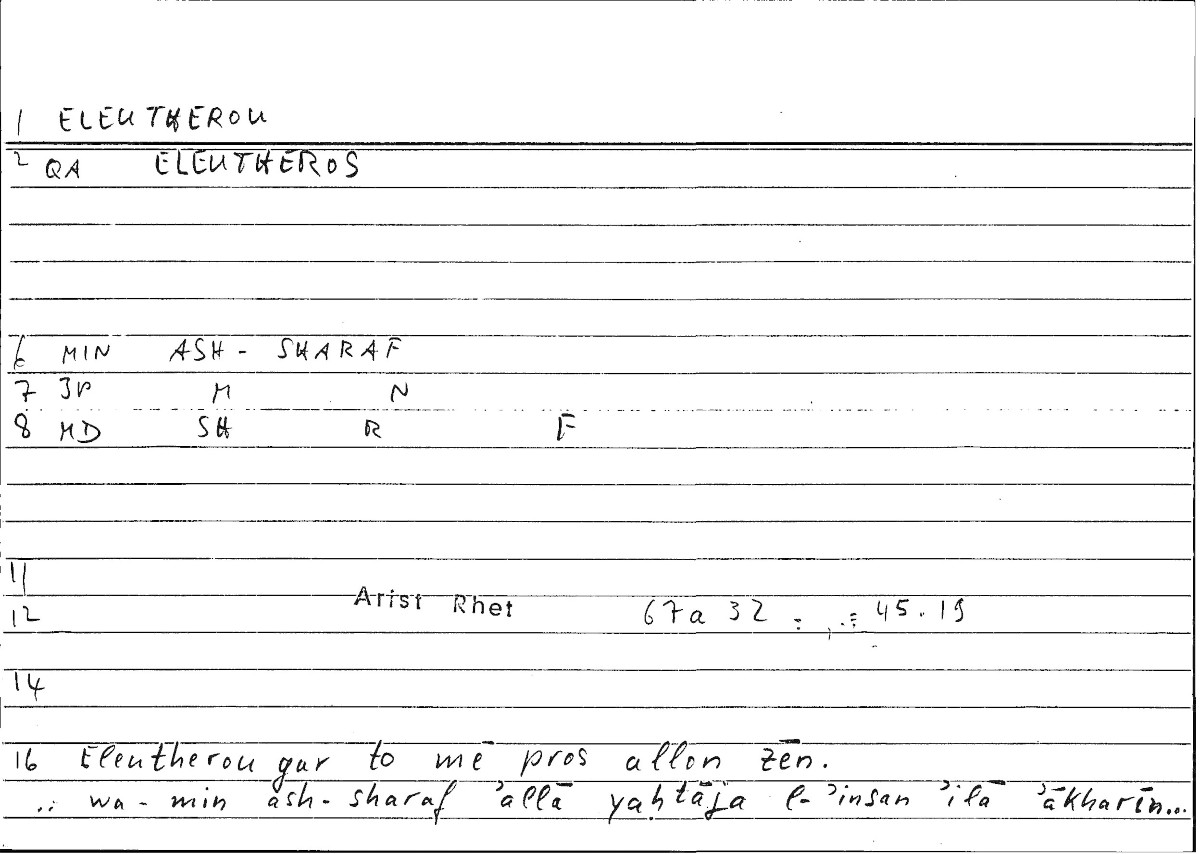 1 ELEUTHEROU
2 QA ELEUTHEROS
6 MIN ASH-SHARAF
7 3P M N
8 MD SH R F
11
12 Arist Rhet 67a 32 = 45.19
14
16 Eleutherou gar to mē pros allon zēn.
.: wa-min ash-sharaf ʾallā yaḥtāja l-ʾinsan ʾilā ʾākharīn...